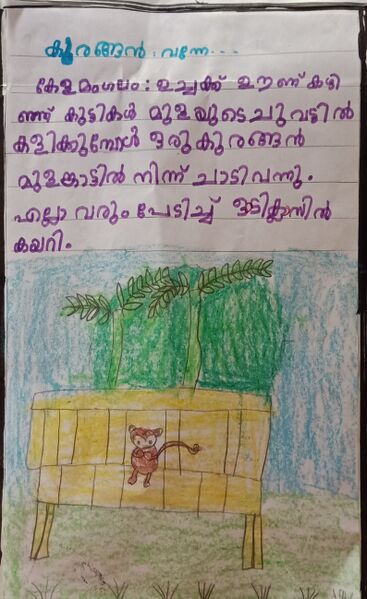 കുരങ്ങൻ വന്നേ...
കേളമംഗലം: ഉച്ചക്ക് ഊണ് കഴി
ഞ്ഞ് കുട്ടികൾ മുളയുടെ ചുവട്ടിൽ
കളിക്കുമ്പോൾ ഒരു കുരങ്ങൻ
മുളങ്കാട്ടിൽ നിന്ന് ചാടി വന്നു.
എല്ലാവരും പേടിച്ച് ഓടി ക്ലാസിൽ
കയറി.